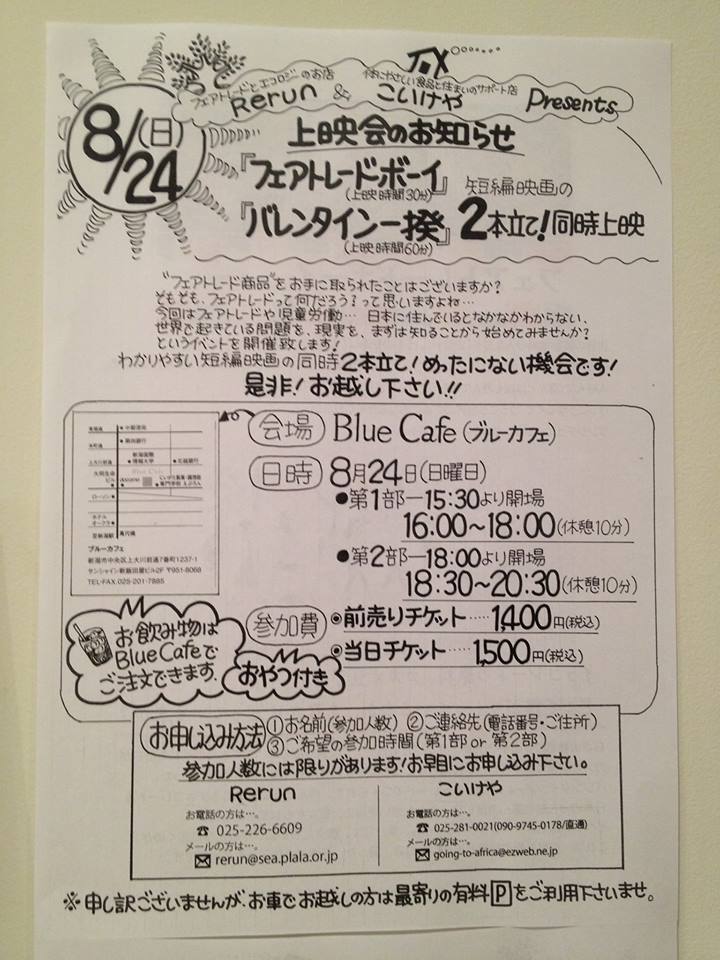 8/24(日)
フェアトレードとエコロジーのお店
体にやさしい食品と住まいのサポート店
Rerun & こいけや Presents
上映会のお知らせ
『フェアトレードボーイ』
(上映時間30分)
『バレンタイン一揆』
(上映時間60分)
短編映画の
2本立て!同時上映
"フェアトレード商品"をお手に取られたことはございますか?
そもそも、フェアトレードって何だろう?って思いますよね…
今回はフェアトレードや児童労働… 日本に住んでいるとなかなかわからない、
世界で起きている問題を、現実を、まずは知ることから始めてみませんか?
というイベントを開催致します!
わかりやすい短編映画の同時2本立て!めったにない機会です!
是非!お越し下さい!!
会場 Blue Cafe (ブルーカフェ)
日時 8月24日(日曜日)
●第1部—15:30より開場
16:00〜18:00(休憩10分)
●第2部—18:00より開場
18:30〜20:30(休憩10分)
参加費 ◉前売りチケット……1,400円(税込)
◉当日チケット……1,500円(税込)
Blue Cafe
ローソン
ホテル
オークラ
ブルーカフェ
新潟市中央区上大川前通7番町1237-1
サンシャイン新飯田屋ビル2F 〒951-8068
TEL・FAX.025-201-7885
お飲み物は
Blue Cafeで
ご注文できます。
おやつ付き
お申し込み方法 ①お名前(参加人数) ②ご連絡先(電話番号・ご住所)
③ご希望の参加時間(第1部 or 第2部)
参加人数には限りがあります!お早目にお申し込み下さい。
Rerun
お電話の方は…。
☎ 025-226-6609
メールの方は…。
✉ rerun@sea.plala.or.jp
こいけや
お電話の方は…。
☎ 025-281-0021(090-9745-0178/直通)
メールの方は…。
✉ going-to-africa@ezweb.ne.jp
※申し訳ございませんが、お車でお越しの方は最寄りの有料Pをご利用下さいませ。